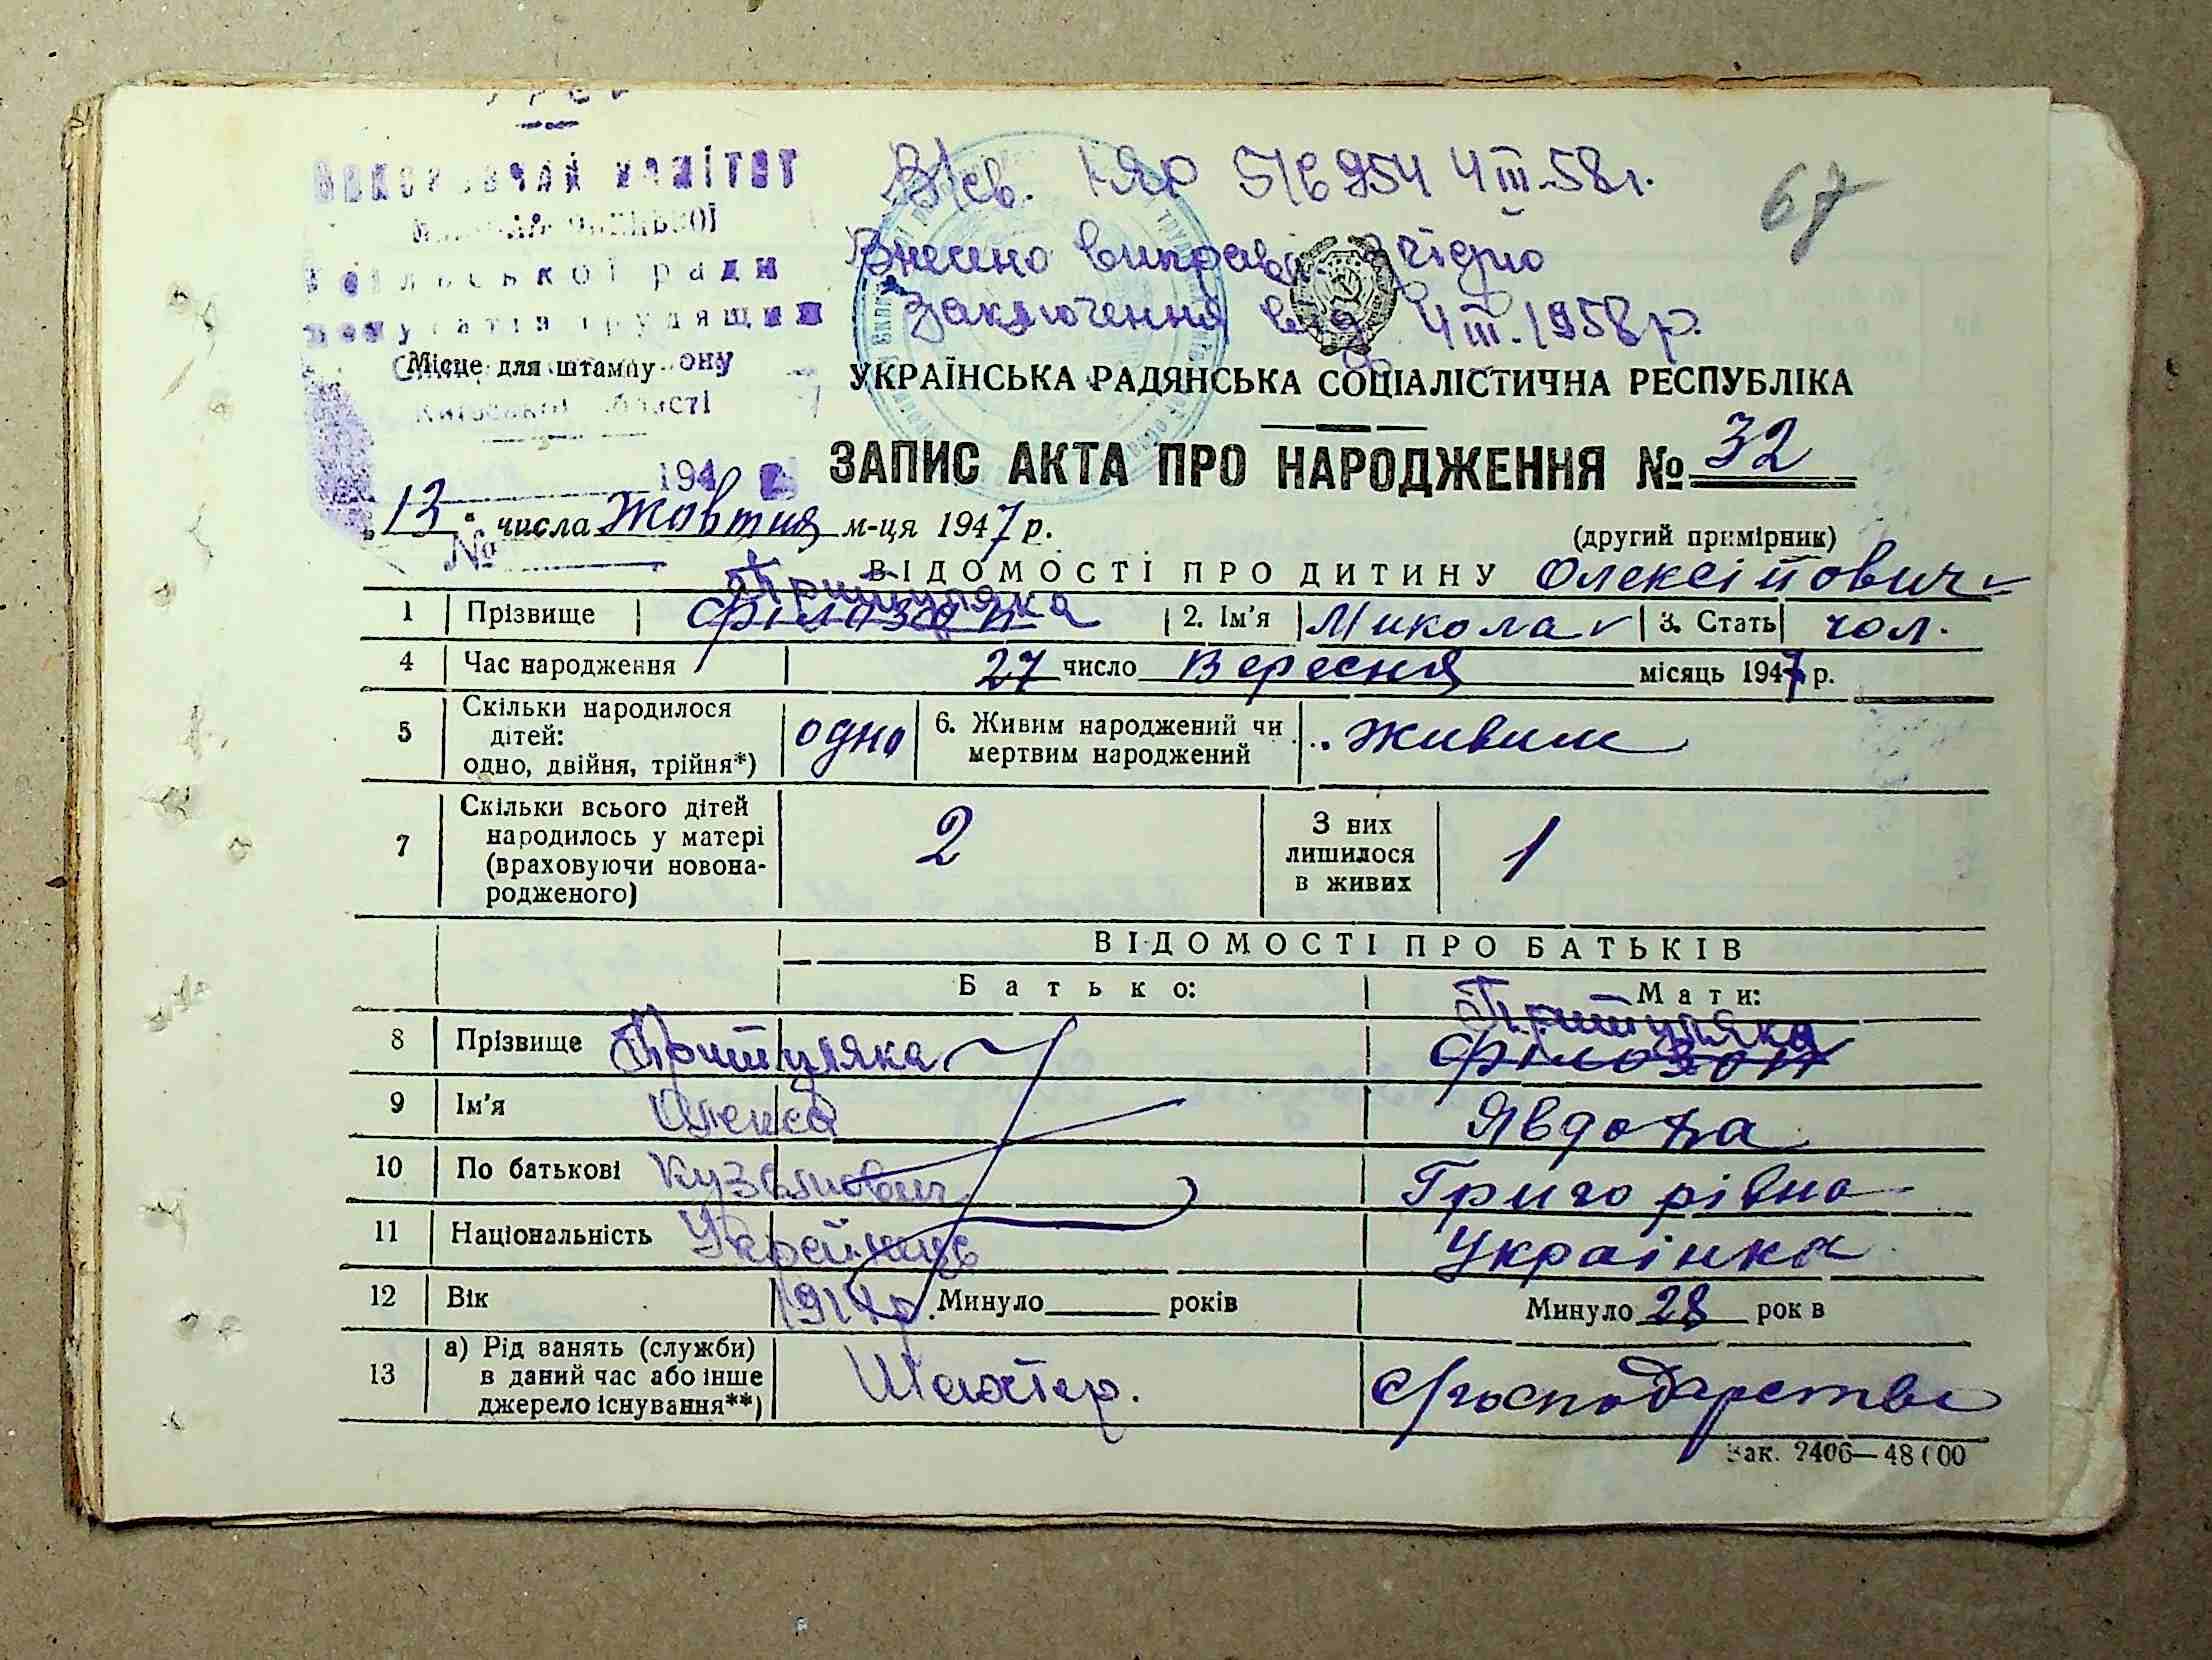 УРСР
Виконавчий комітет
сільської ради
депутатів трудящих
Місце для штампу
ону
Київської області
194
№
В/св. І-ЯР 516954 4 III.58 г.
67
Внесено виправл. згідно
заключення від 4 III.1958 р.
УКРАЇНСЬКА РАДЯНСЬКА СОЦІАЛІСТИЧНА РЕСПУБЛІКА
ЗАПИС АКТА ПРО НАРОДЖЕННЯ № 32
„13" числа Жовтня м-ця 1947 р.
(другий примірник)
ВІДОМОСТІ ПРО ДИТИНУ Олексійович
Притуляка
1 Прізвище Філозоп 2. Ім'я Микола 3. Стать чол.
4 Час народження 27 число Вересня місяць 1947 р.
5 Скільки народилося дітей: одно, двійня, трійня*) одно 6. Живим народжений чи мертвим народжений живим
7 Скільки всього дітей народилось у матері (враховуючи новонародженого) 2 З них лишилося в живих 1
ВІДОМОСТІ ПРО БАТЬКІВ
Батько: Мати:
Притуляка
8 Прізвище Притуляка Філозоп
9 Ім'я Олекса Явдоха
10 По батькові Кузьмович Григорівна
11 Національність Українець Українка
12 Вік 1914 р. Минуло років Минуло 28 рок в
13 а) Рід занять (служби) в даний час або інше джерело існування**) Шахтер. с/господарстві
Зак. 2406—48 000